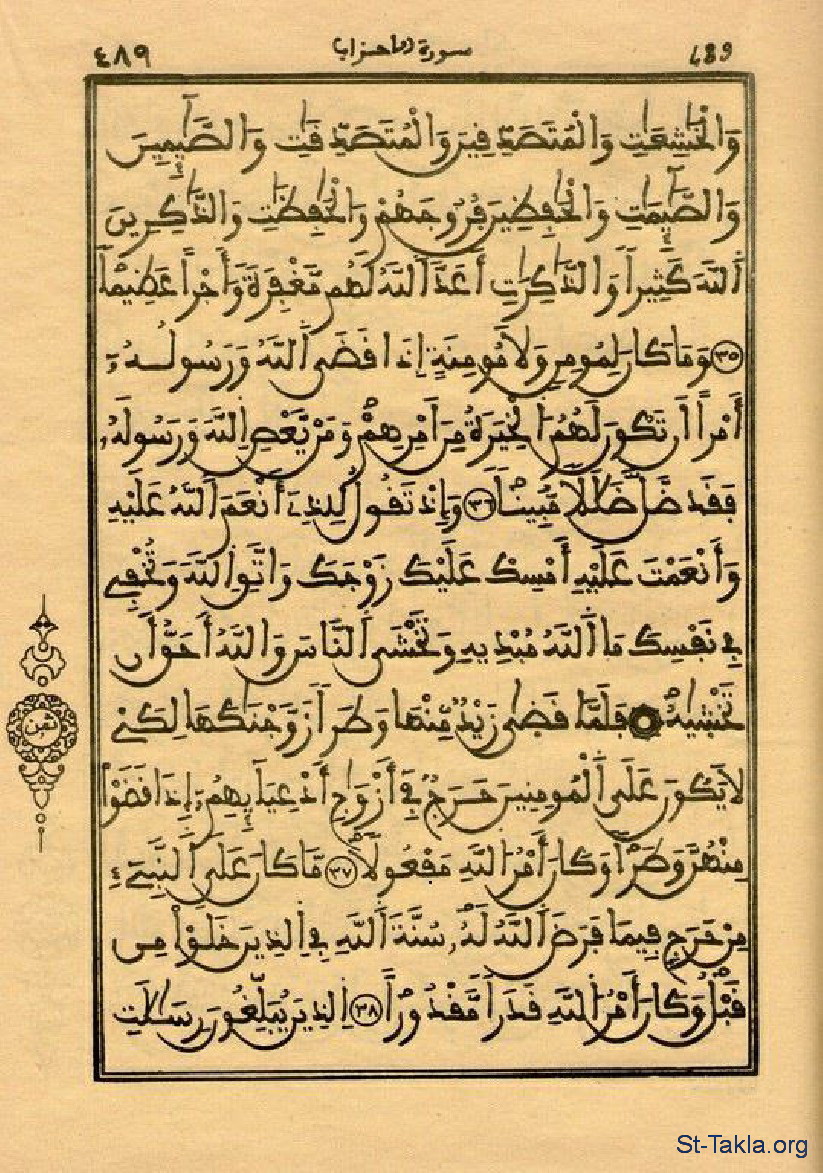 ٤٨٩ سورة الأحزاب 489
وَالْخَٰشِعَٰتِ وَالْمُتَصَدِّفِينَ وَالْمُتَصَدِّفَٰتِ وَالصَّٰٓئِمِينَ
وَالصَّٰٓئِمَٰتِ وَالْحَٰفِظِينَ فُرُوجَهُمْ وَالْحَٰفِظَٰتِ وَالذَّٰكِرِينَ
اَللَّهَ كَثِيراً وَالذَّٰكِرَٰتِ أَعَدَّ اَللَّهُ لَهُم مَّغْفِرَةً وَأَجْراً عَظِيماً
٣٥ وَمَا كَانَ لِمُومِنٍ وَلَا مُومِنَةٍ إِذَا قَضَى اَللَّهُ وَرَسُولُهُۥٓ
أَمْراً أَن تَكُونَ لَهُمُ اُلْخِيَرَةُ مِنَ اَمْرِهِمْ وَمَنْ يَّعْصِ اِللَّهَ وَرَسُولَهُۥ
فَقَد ضَّلَّ ضَلَٰلًا مُّبِيناً ٣٦ وَإِذْ تَقُولُ لِلذِےٓ أَنْعَمَ اَللَّهُ عَلَيْهِ
وَأَنْعَمْتَ عَلَيْهِ أَمْسِكْ عَلَيْكَ زَوْجَكَ وَاتَّقِ اِللَّهَ وَتُخْفِے
فِے نَفْسِكَ مَا اَللَّهُ مُبْدِيهِ وَتَخْشَى اَلنَّاسَ وَاللَّهُ أَحَقُّ أَن
تَخْشَيٰهُ فَلَمَّا قَضَىٰ زَيْدٌ مِّنْهَا وَطَراً زَوَّجْنَٰكَهَا لِكَےْ
لَا يَكُونَ عَلَى اَلْمُومِنِينَ حَرَجٌ فِےٓ أَزْوَٰجِ أَدْعِيَآئِهِمُۥٓ إِذَا قَضَوْاْ
مِنْهُنَّ وَطَراً وَكَانَ أَمْرُ اُللَّهِ مَفْعُولًا ٣٧ مَّا كَانَ عَلَى اَلنَّبِےٓءِ
مِنْ حَرَجٍ فِيمَا فَرَضَ اَللَّهُ لَهُۥ سُنَّةَ اَللَّهِ فِے اِلذِينَ خَلَوْاْ مِن
قَبْلُ وَكَانَ أَمْرُ اُللَّهِ قَدَراً مَّقْدُوراً ٣٨ اِلذِينَ يُبَلِّغُونَ رِسَٰلَٰتِ
ثمن
St-Takla.org